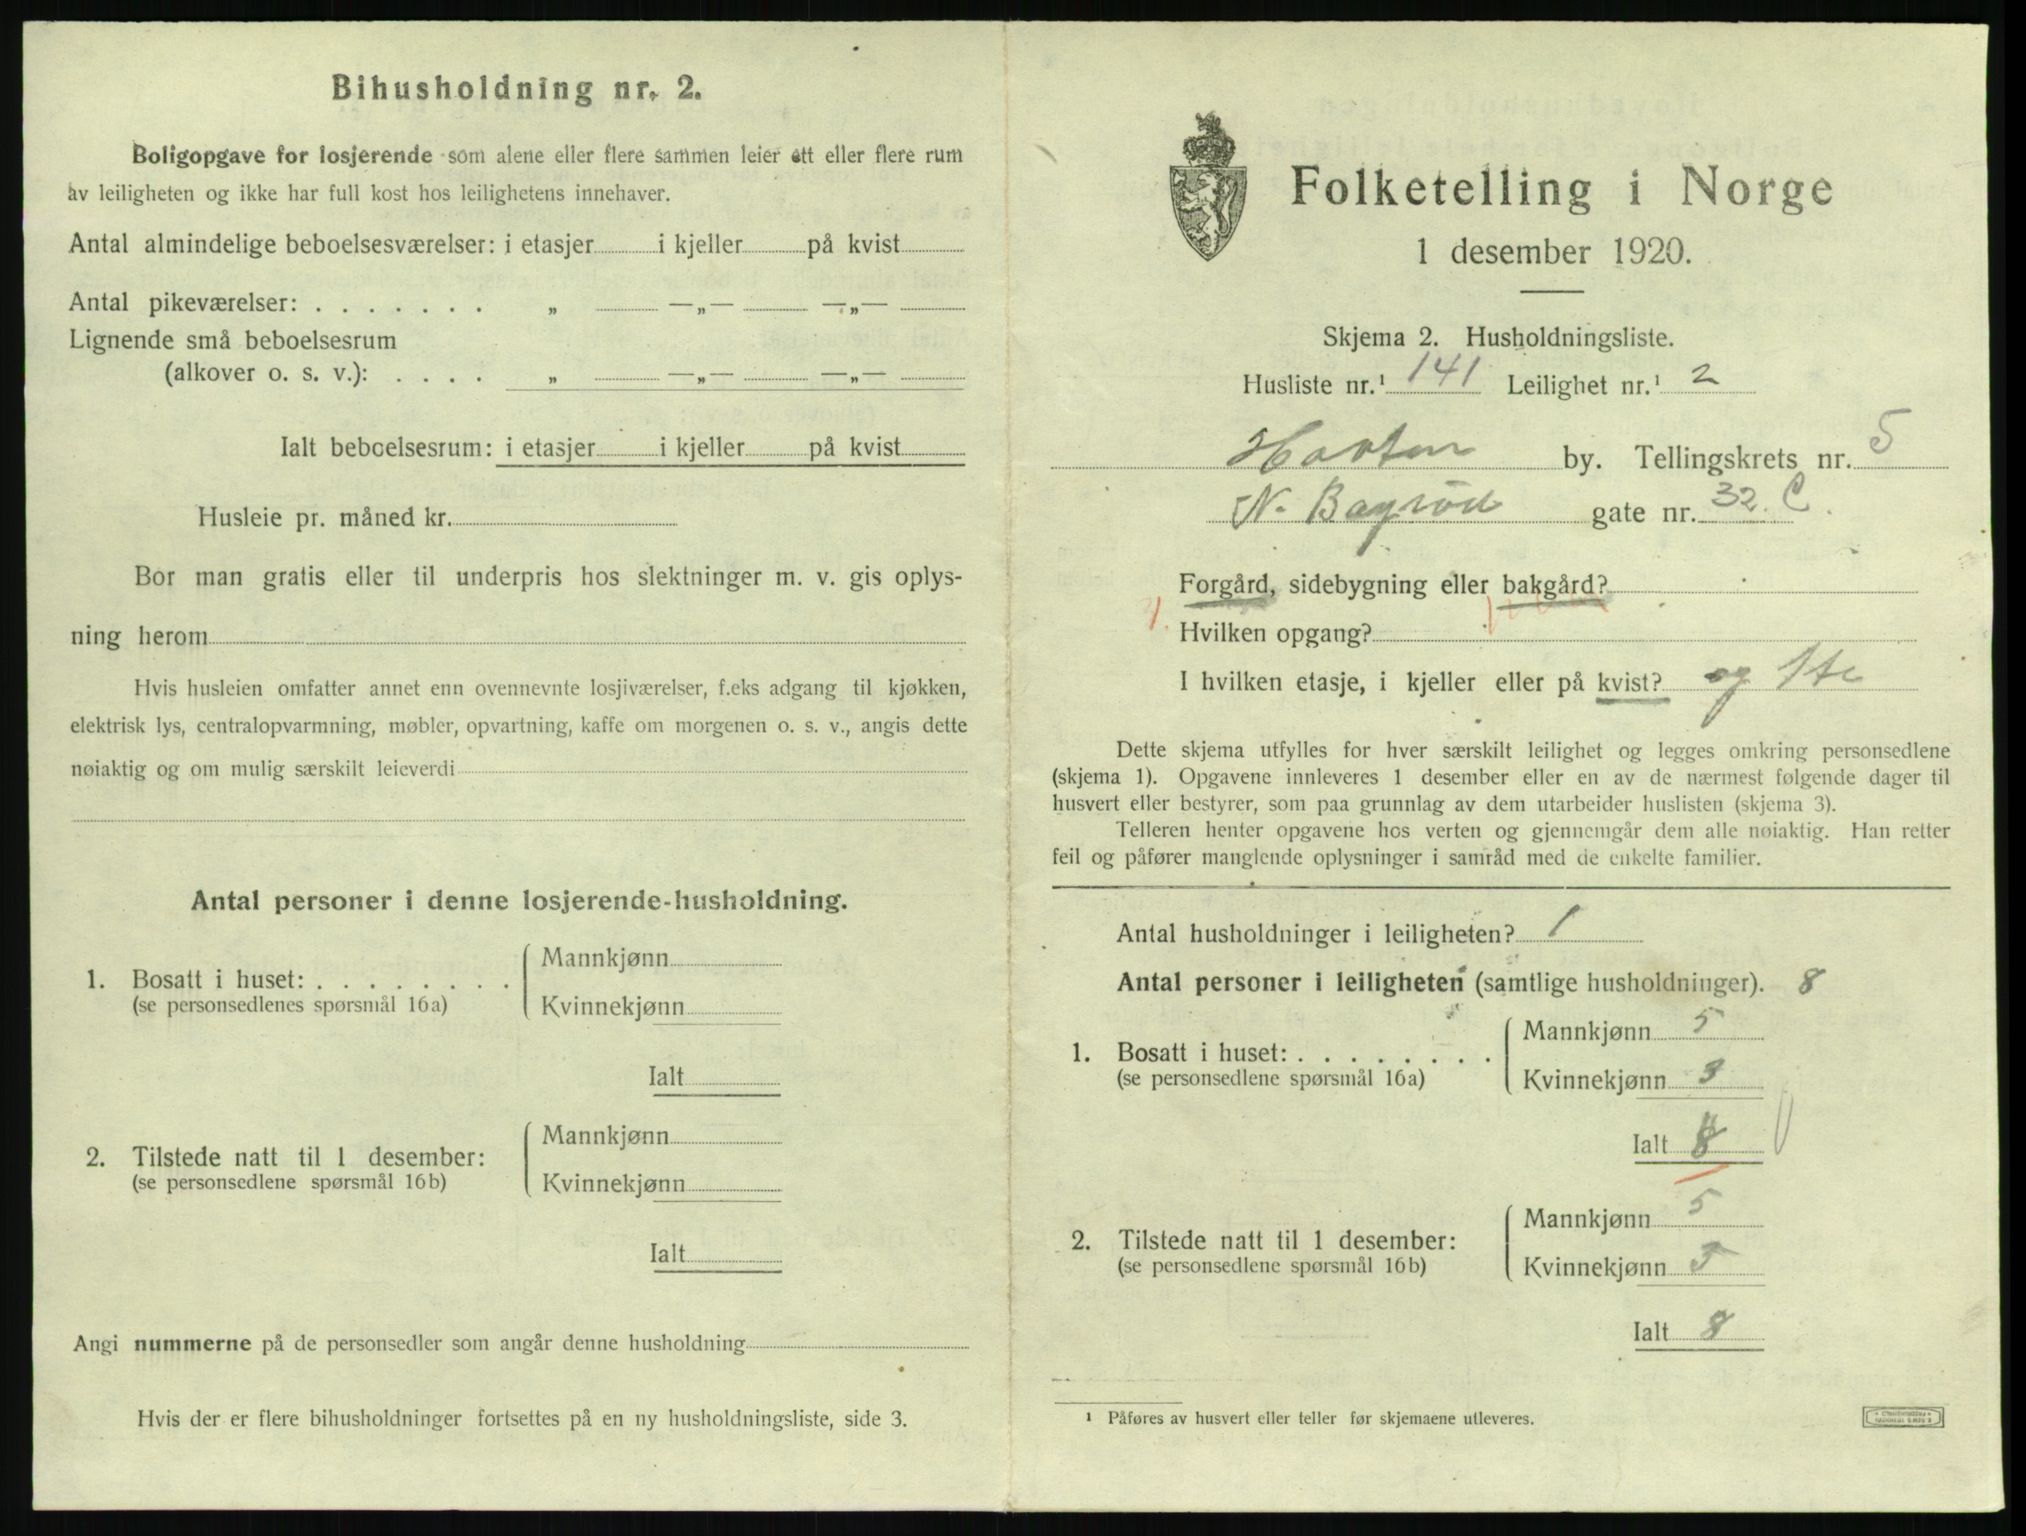 Bihusholdning nr. 2.
Boligopgave for losjerende som alene eller flere sammen leier ett eller flere rum
av leiligheten og ikke har full kost hos leilighetens innehaver.
Antal almindelige beboelsesværelser: i etasjer i kjeller på kvist
Antal pikeværelser: . . . . . . . „ —„— —„—
Lignende små beboelsesrum
(alkover o. s. v.): . . . . „ —„— —„—
Ialt beboelsesrum: i etasjer i kjeller på kvist
Husleie pr. måned kr.
Bor man gratis eller til underpris hos slektninger m. v. gis oplys-
ning herom
Hvis husleien omfatter annet enn ovennevnte losjiværelser, f.eks adgang til kjøkken,
elektrisk lys, centralopvarmning, møbler, opvartning, kaffe om morgenen o. s. v., angis dette
nøiaktig og om mulig særskilt leieverdi
Antal personer i denne losjerende-husholdning.
1. Bosatt i huset: . . . . . . . .
(se personsedlenes spørsmål 16a)
Mannkjønn
Kvinnekjønn
Ialt
2. Tilstede natt til 1 desember:
(se personsedlene spørsmål 16b)
Mannkjønn
Kvinnekjønn
Ialt
Angi nummerne på de personsedler som angår denne husholdning
Hvis der er flere bihusholdninger fortsettes på en ny husholdningsliste, side 3.
Folketelling i Norge
1 desember 1920.
Skjema 2. Husholdningsliste.
Husliste nr.¹ 141 Leilighet nr.¹ 2
Horten by. Tellingskrets nr. 5
N. Bagrød gate nr. 32. C.
Forgård, sidebygning eller bakgård?
Hvilken opgang?
I hvilken etasje, i kjeller eller på kvist? og 1ste
Dette skjema utfylles for hver særskilt leilighet og legges omkring personsedlene
(skjema 1). Opgavene innleveres 1 desember eller en av de nærmest følgende dager til
husvert eller bestyrer, som paa grunnlag av dem utarbeider huslisten (skjema 3).
Telleren henter opgavene hos verten og gjennemgår dem alle nøiaktig. Han retter
feil og påfører manglende oplysninger i samråd med de enkelte familier.
Antal husholdninger i leiligheten? 1
Antal personer i leiligheten (samtlige husholdninger). 8
1. Bosatt i huset: . . . . . . . .
(se personsedlene spørsmål 16a)
Mannkjønn 5
Kvinnekjønn 3
Ialt 8
2. Tilstede natt til 1 desember:
(se personsedlene spørsmål 16b)
Mannkjønn 5
Kvinnekjønn 3
Ialt 8
¹ Påføres av husvert eller teller før skjemaene utleveres.